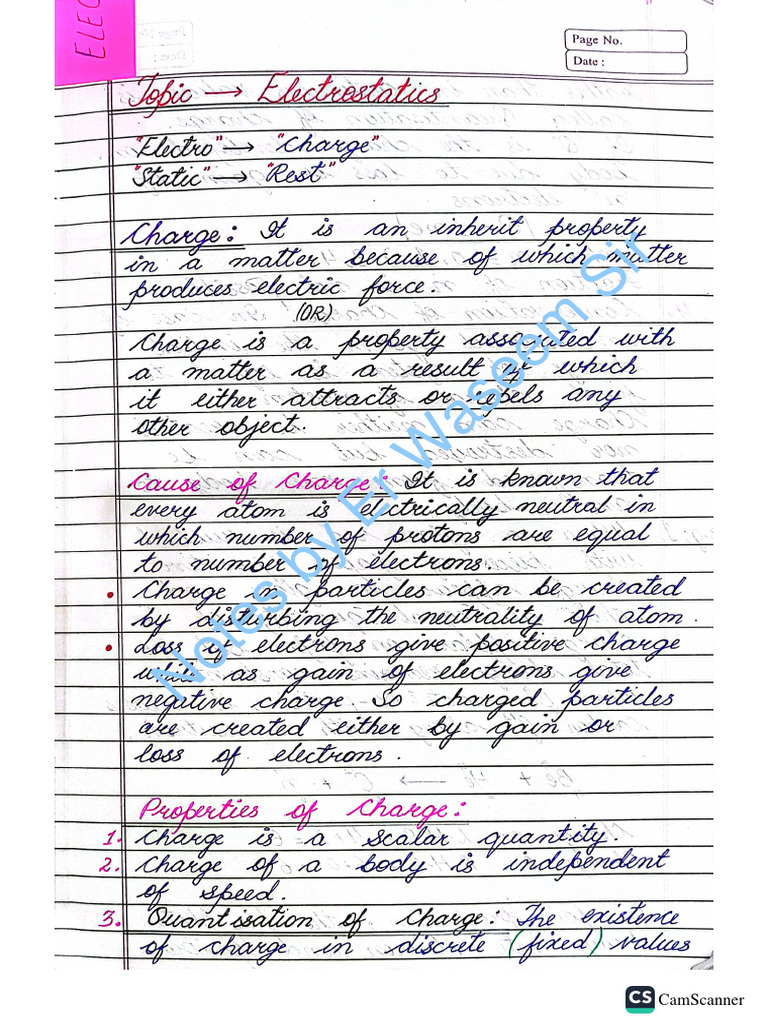 ELEC
Page No.
Date :
Topic → Electrostatics
"Electro" → "Charge"
"Static" → "Rest"
Charge: It is an inherit property
in a matter because of which matter
produces electric force.
(OR)
Charge is a property associated with
a matter as a result of which
it either attracts or repels any
other object.
Cause of Charge: It is known that
every atom is electrically neutral in
which number of protons are equal
to number of electrons.
• Charge in particles can be created
by disturbing the neutrality of atom.
• Loss of electrons give positive charge
while as gain of electrons give
negative charge. So charged particles
are created either by gain or
loss of electrons.
Properties of Charge:
1. Charge is a scalar quantity.
2. Charge of a body is independent
of speed.
3. Quantisation of Charge: The existence
of charge in discrete (fixed) values
Notes by Er Waseem Sir
CS CamScanner